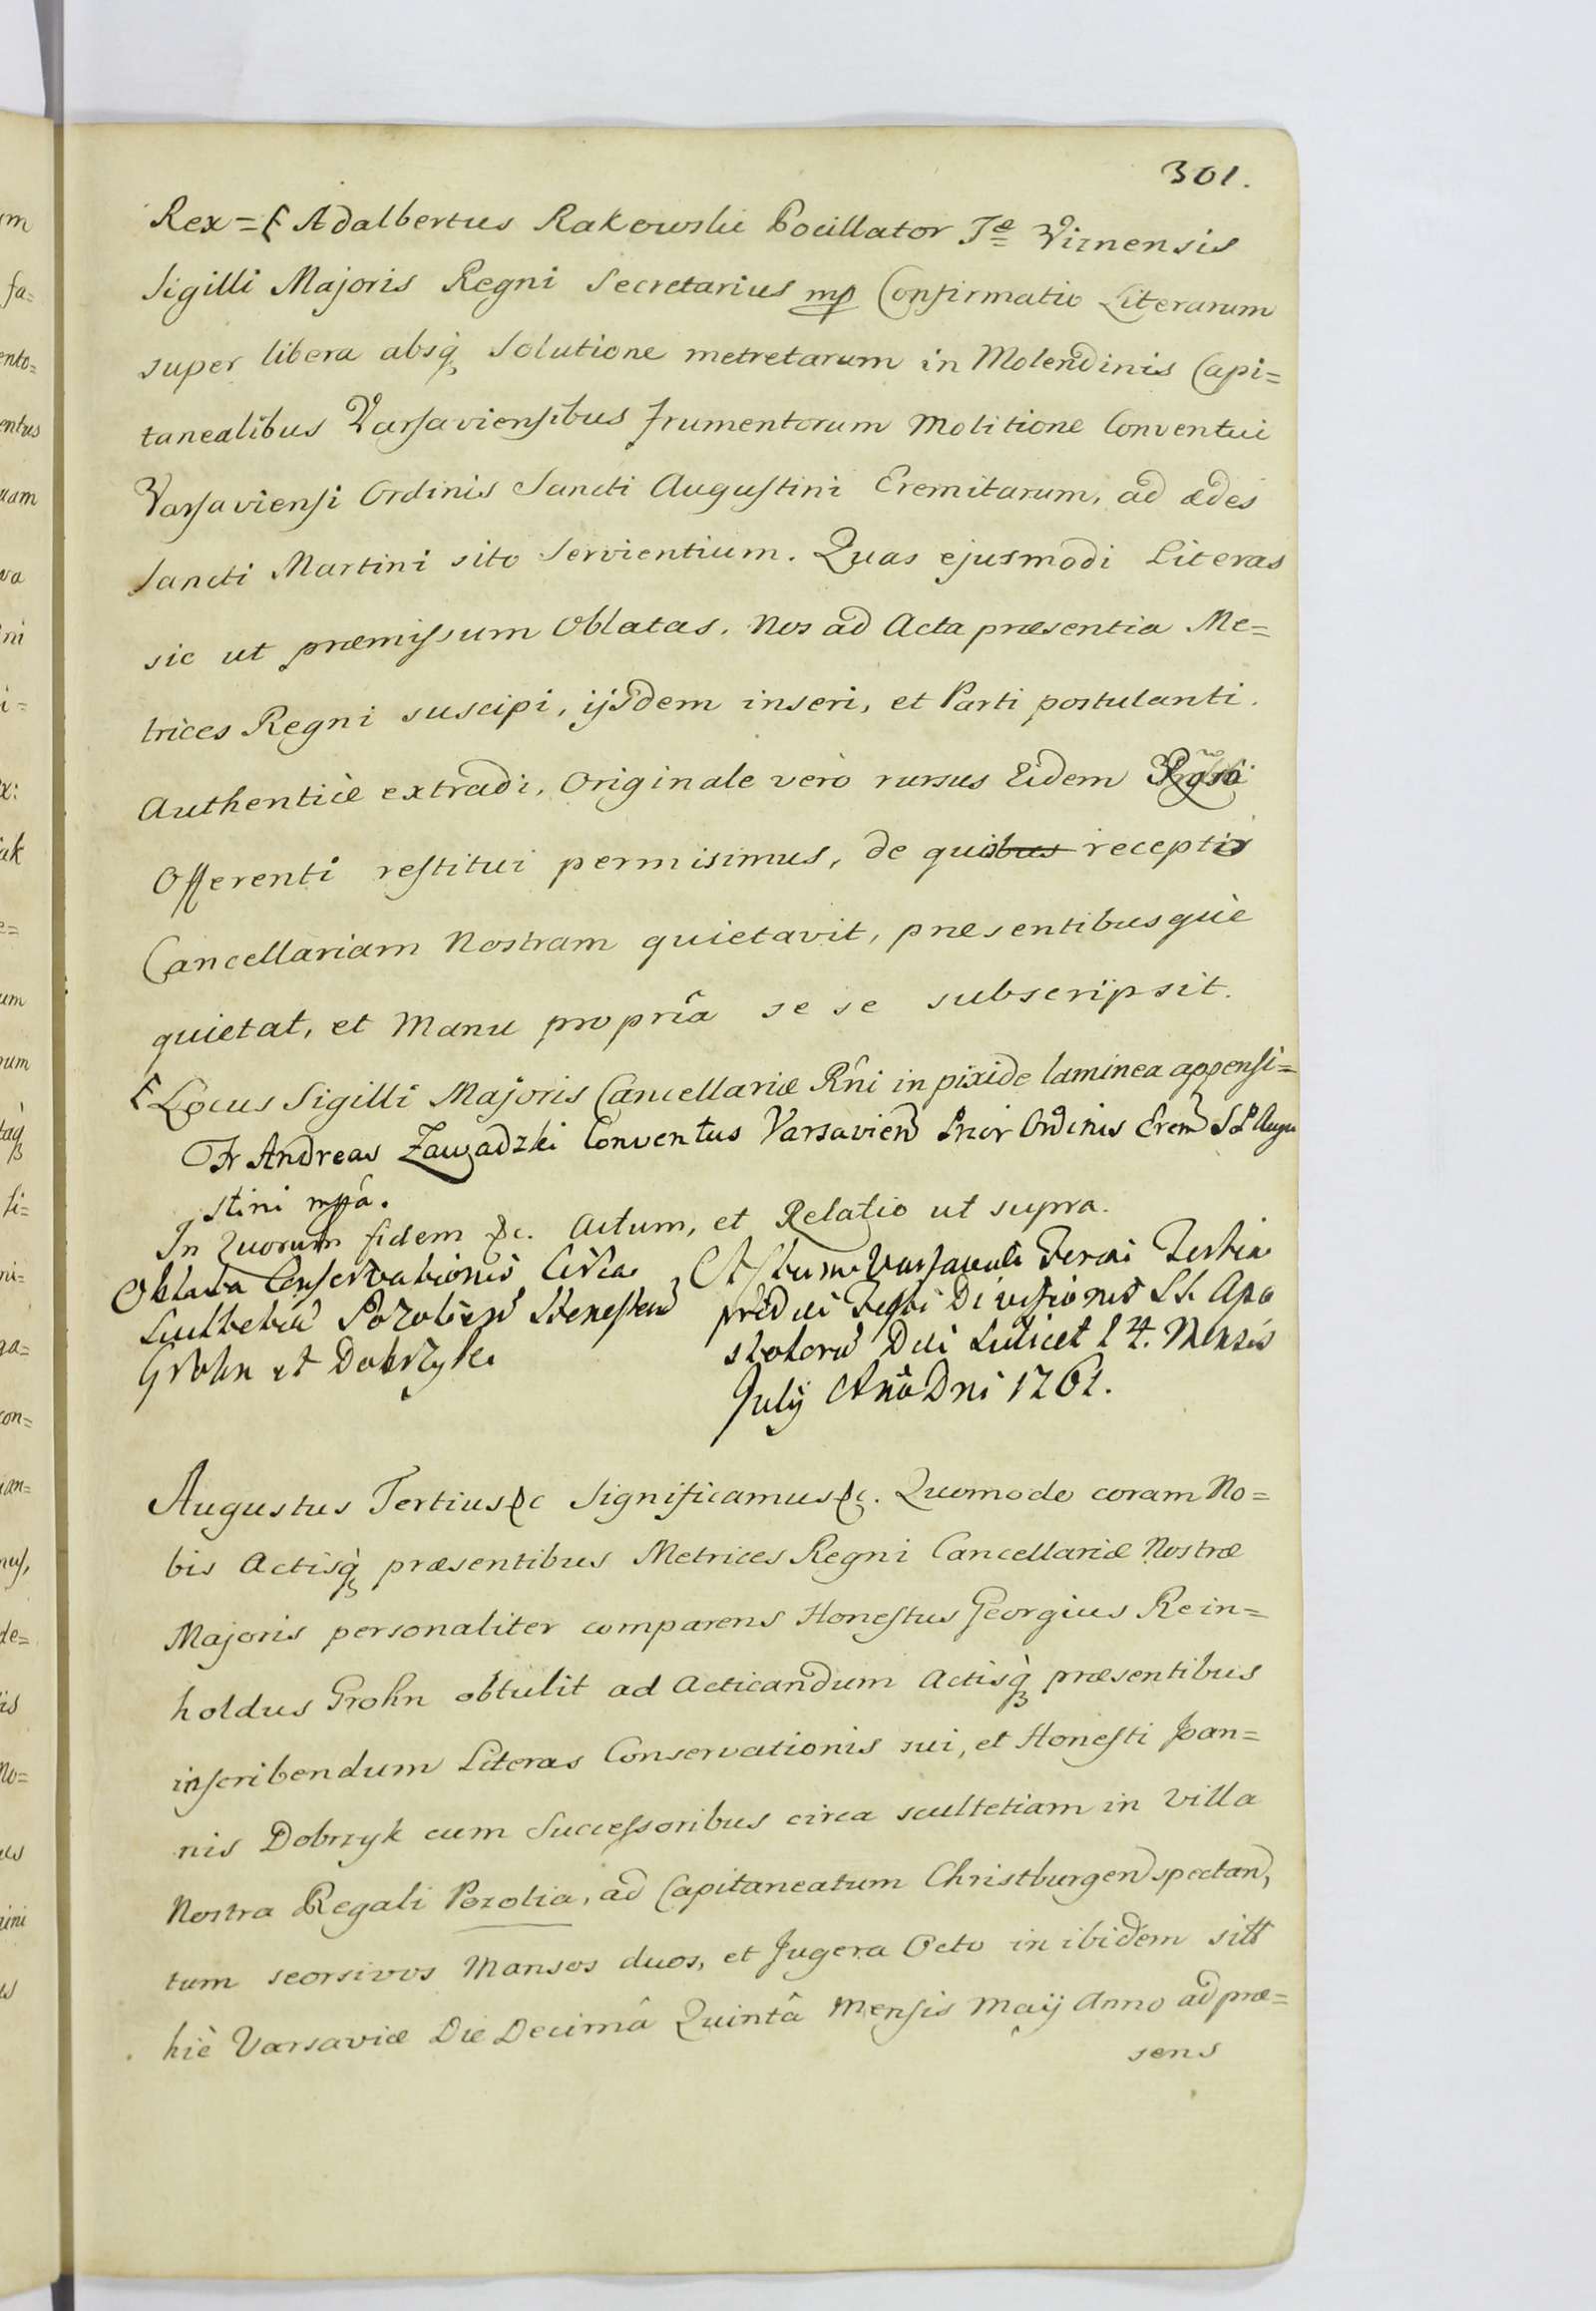 301.
Rex = Ł Adalbertus Rakowski Pocillator Tæ Viznensis
Sigilli Majoris Regni Secretarius mp Confirmatio Literarum
super libera absq; Solutione metretarum in Molendinis Capi=
tanealibus Varsaviensibus frumentorum Molitione Conventui
Varsaviensi Ordinis Sancti Augustini Eremitarum, ad ædes
Sancti Martini sito Servientium. Quas ejusmodi Literas
sic ut præmissum Oblatas. Nos ad Acta præsentia Me=
trices Regni suscipi, ijsdem inseri, et Parti postulanti.
Authenticè extradi, Originale verò rursus Eidem
Offerenti restitui permisimus, de quibus receptis
Cancellariam Nostram quietavit, præsentibusquè
quietat, et Manu propriâ se se subscripsit.
Ł Locus Sigilli Majoris Cancellariæ Rni in pixide laminea appensi=
Fr Andreas Zawadzki Conventus Varsavien Prior Ordinis Erem S P Augu
stini mpâ.
In Quorum fidem &c. Actum, et Relatio ut supra.
Oblata Conservationis Circa
Scultetia Pozolien Honestor
Grohn et Dobrzyk.
Actum Varsaviæ Feria Tertia
pridie Festi Divisionis SS. Apo
stolorū Die Scilicet 14. Mensis
Julij Añô Dni 1761.
Augustus Tertius &c Significamus &c. Quomodo coram No=
bis Actisq; præsentibus Metrices Regni Cancellariæ Nostræ
Majoris personaliter comparens Honestus Georgius Rein=
holdus Grohn obtulit ad Acticandum Actisq; præsentibus
inscribendum Literas Conservationis sui, et Honesti Joan=
nis Dobrzyk cum Successoribus circa scultetiam in Villa
Nostra Regali Pozolia, ad Capitaneatum Christburgen spectan,
tum seorsivos Mansos duos, et Jugera Octo in ibidem sitt
hic Varsaviæ Die Decimâ Quintâ Mensis Maij Anno ad præ=
sens